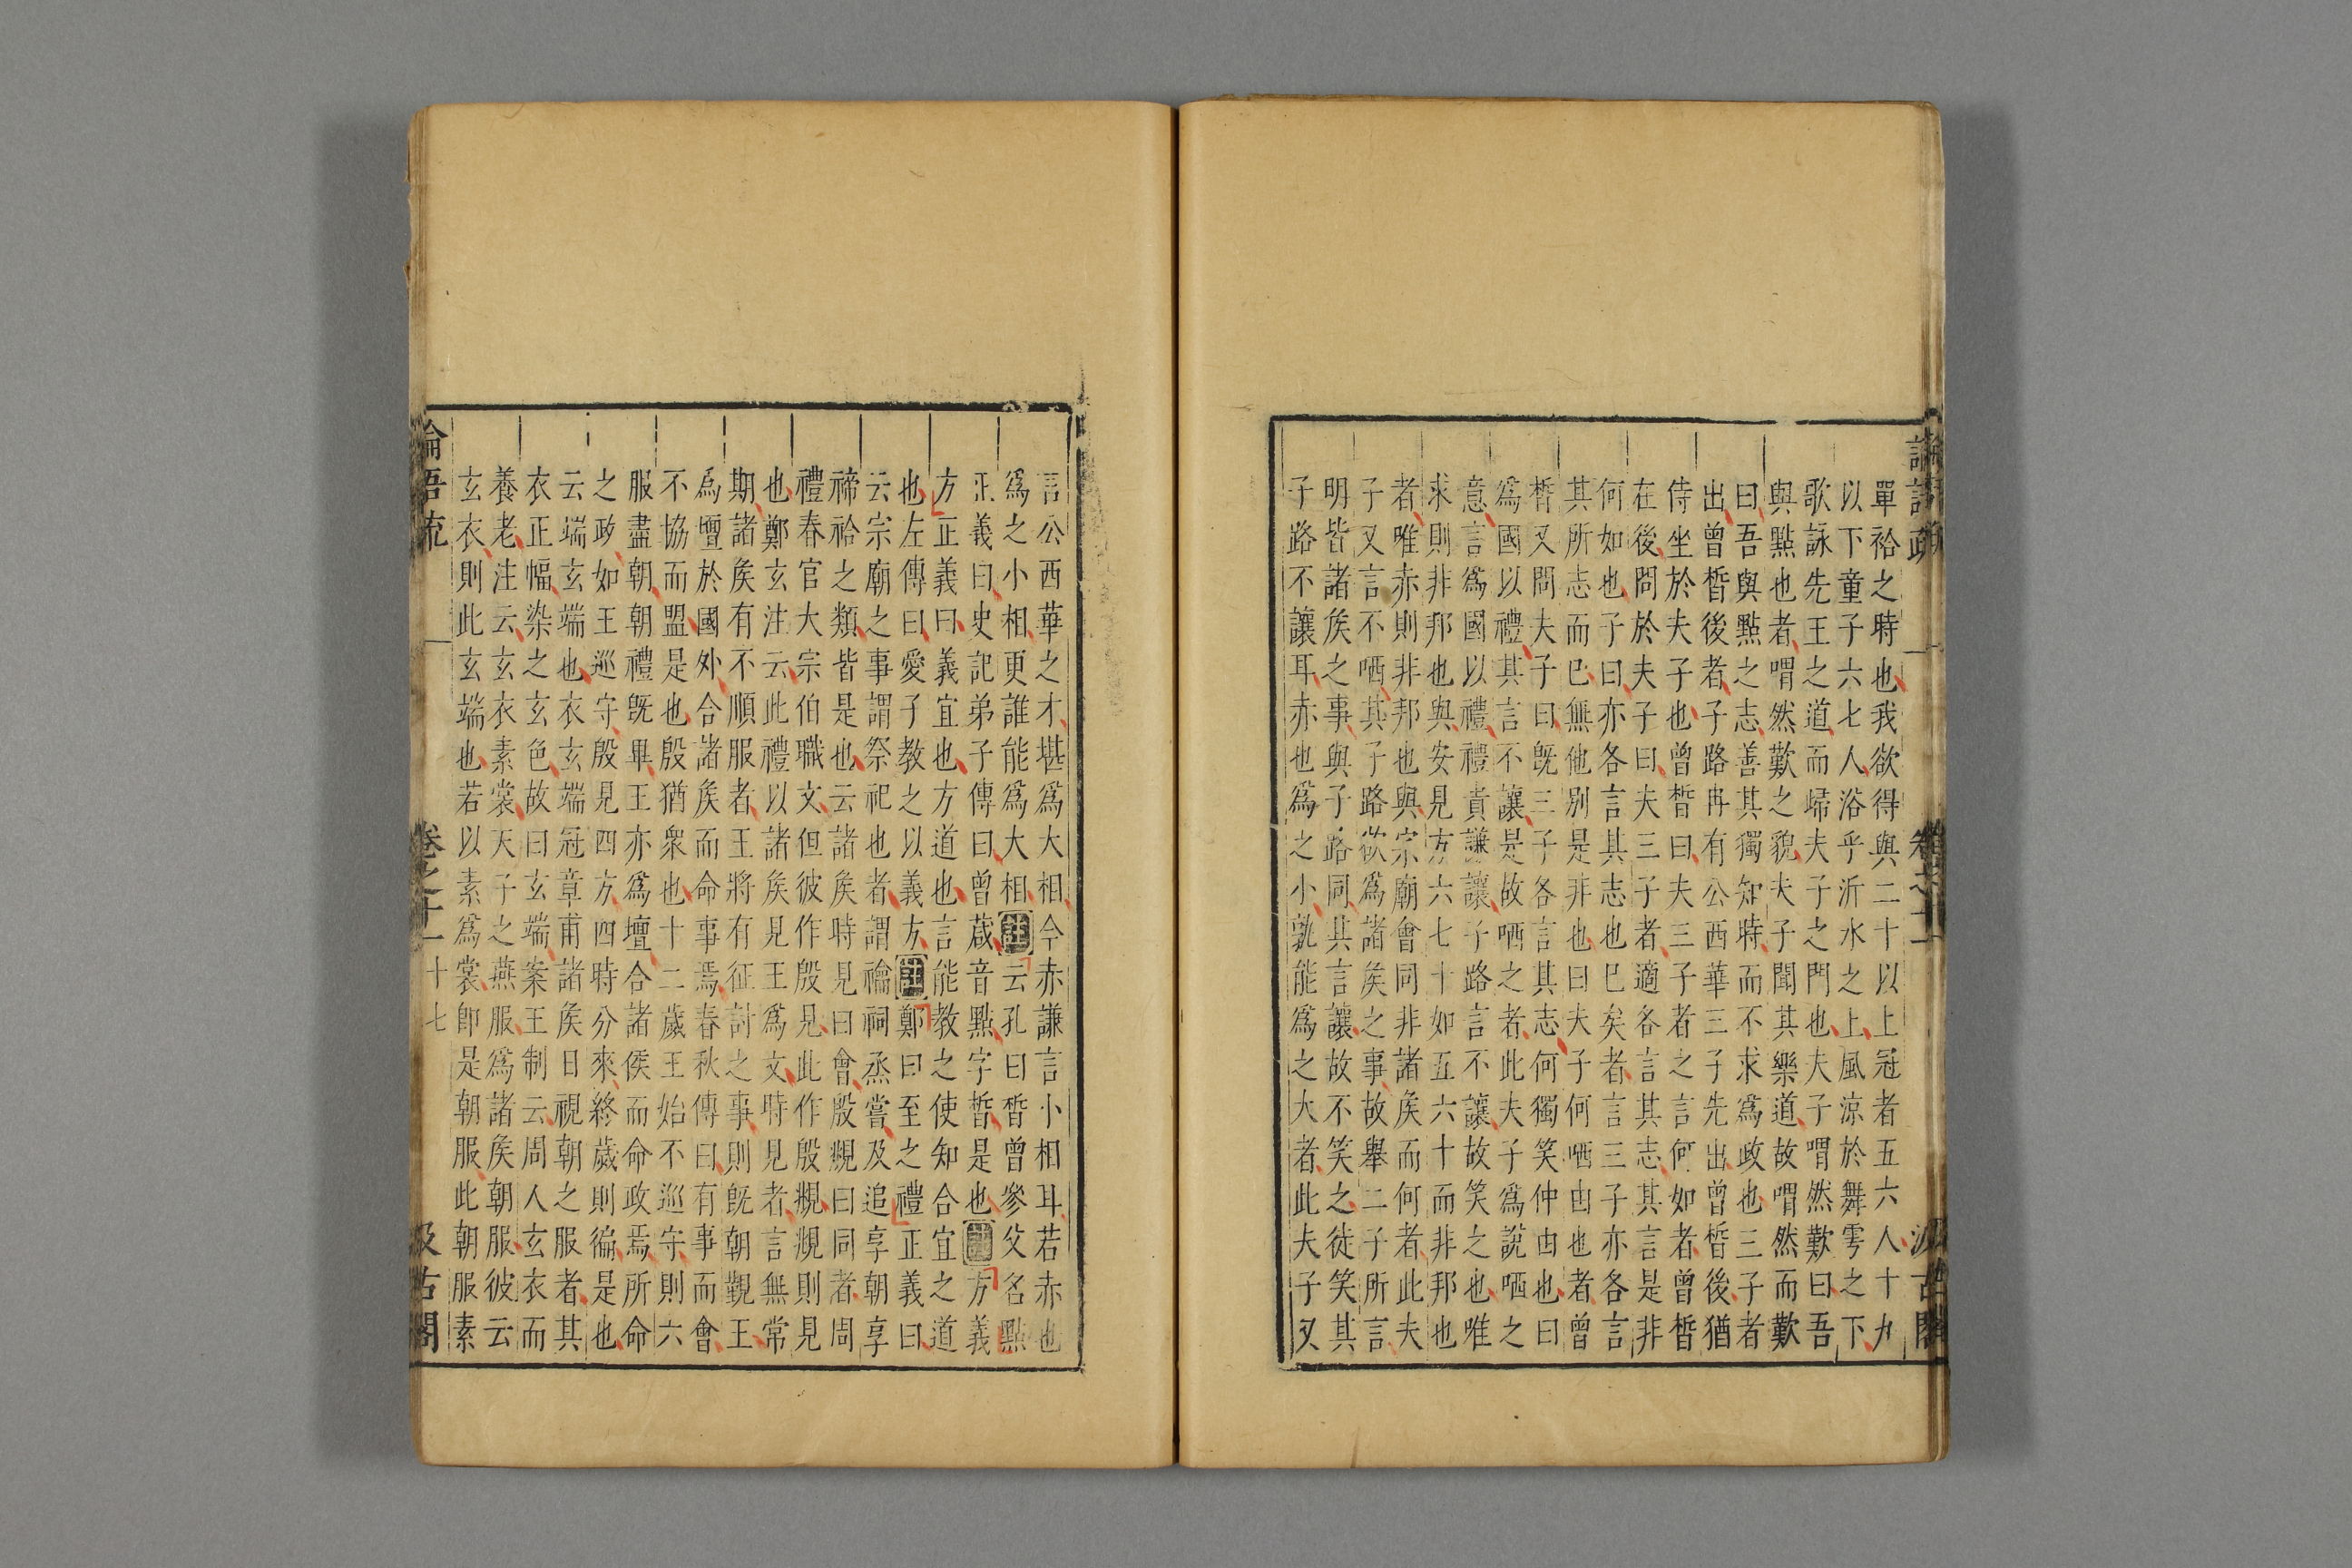 單袷之時也我欲得與二十以上冠者五六人十九
以下童子六七人浴乎沂水之上風涼於舞雩之下
歌詠先王之道而歸夫子之門也夫子喟然歎曰吾
與點也者喟然歎之貌夫子聞其樂道故喟然而歎
曰吾與點之志善其獨知時而不求爲政也三子者
出曾晳後者子路冉有公西華三子先出曾晳後猶
侍坐於夫子也曾晳曰夫三子者之言何如者曾晳
在後問於夫子曰夫三子者適各言其志其言是非
何如也子曰亦各言其志也已矣者言三子亦各言
其所志而已無他別是非也曰夫子何哂由也者曾
晳又問夫子曰旣三子各言其志何獨笑仲由也曰
爲國以禮其言不讓是故哂之者此夫子爲說哂之
意言爲國以禮禮貴謙讓子路言不讓故笑之也唯
求則非邦也與安見方六七十如五六十而非邦也
者唯赤則非邦也與宗廟會同非諸矦而何者此夫
子又言不哂其子路欲爲諸矦之事故舉二子所言
明皆諸矦之事與子路同其言讓故不笑之徒笑其
子路不讓耳赤也爲之小孰能爲之大者此夫子又
言公西華之才堪爲大相今赤謙言小相耳若赤也
爲之小相更誰能爲大相註云孔曰晳曾參父名點
正義曰史記弟子傳曰曾蒧音點字晳是也註方義
方正義曰義宜也方道也言能教之使知合宜之道
也左傳曰愛子教之以義方註鄭曰至之禮正義曰
云宗廟之事謂祭祀也者謂禴祠烝嘗及追享朝享
禘祫之類皆是也云諸矦時見曰會殷覜曰同者周
禮春官大宗伯職文但彼作殷見此作殷覜覜則見
也鄭玄注云此禮以諸矦見王爲文時見者言無常
期諸矦有不順服者王將有征討之事則旣朝覲王
爲壇於國外合諸矦而命事焉春秋傳曰有事而會
不協而盟是也殷猶衆也十二歲王始不巡守則六
服盡朝朝禮旣畢王亦爲壇合諸侯而命政焉所命
之政如王巡守殷見四方四時分來終歲則徧是也
云端玄端也衣玄端冠章甫諸矦日視朝之服者其
衣正幅染之玄色故曰玄端案王制云周人玄衣而
養老注云玄衣素裳天子之燕服爲諸矦朝服彼云
玄衣則此玄端也若以素爲裳卽是朝服此朝服素
論語疏 卷之十一 十七 汲古閣